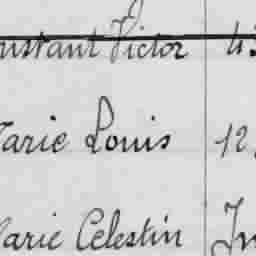 nstant Victor 43
Marie Louis 12
Marie Celestin In